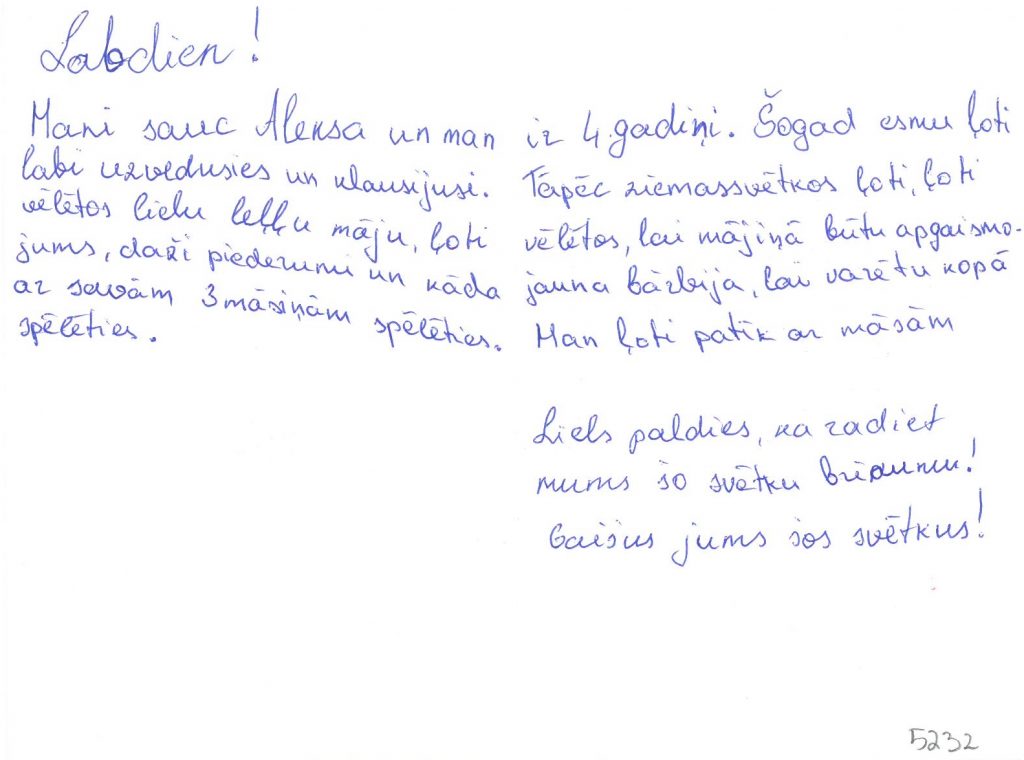 Labdien!
Mani sauc Aleksa un man ir 4 gadiņi. Šogad esmu ļoti
labi uzvedusies un klausijusi. Tāpēc ziemassvētkos ļoti, ļoti
vēlētos lielu leļļu māju, ļoti vēlētos, lai mājiņā būtu apgaismo-
jums, daži piederumi un kāda jauna bārbija, lai varētu kopā
ar savām 3 māsiņām spēlēties. Man ļoti patīk ar māsām
spēlēties.
Liels paldies, ka radiet
mums šo svētku brīnumu!
Gaišus jums šos svētkus!
5232